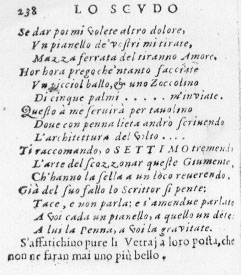 238 LO SCVDO
Se dar poi mi volete altro dolore,
Vn pianello de' vostri mi tirate,
Mazza ferrata del tiranno Amore.
Hor hora prego che'ntanto facciate
Vn picciol ballo, & uno Zoccolino
Di cinque palmi .... m'inuiate.
Questo à me seruirà per tauolino
Doue con penna lieta andrò scriuendo
L'architettura del Volto ....
Ti raccomando, o SETTIMO tremendo
L'arte del scozzonar queste Giumente,
Ch'hanno la sella a un loco reuerendo.
Già del suo fallo lo Scrittor si pente;
Tace, e non parla; e s'amendue parlate
A voi cada un pianello, a quello un dente
A lui la Penna, a voi la grauitate.
S'affatichino pure li Vetrai a loro posta, che
non ne faran mai uno più bello.